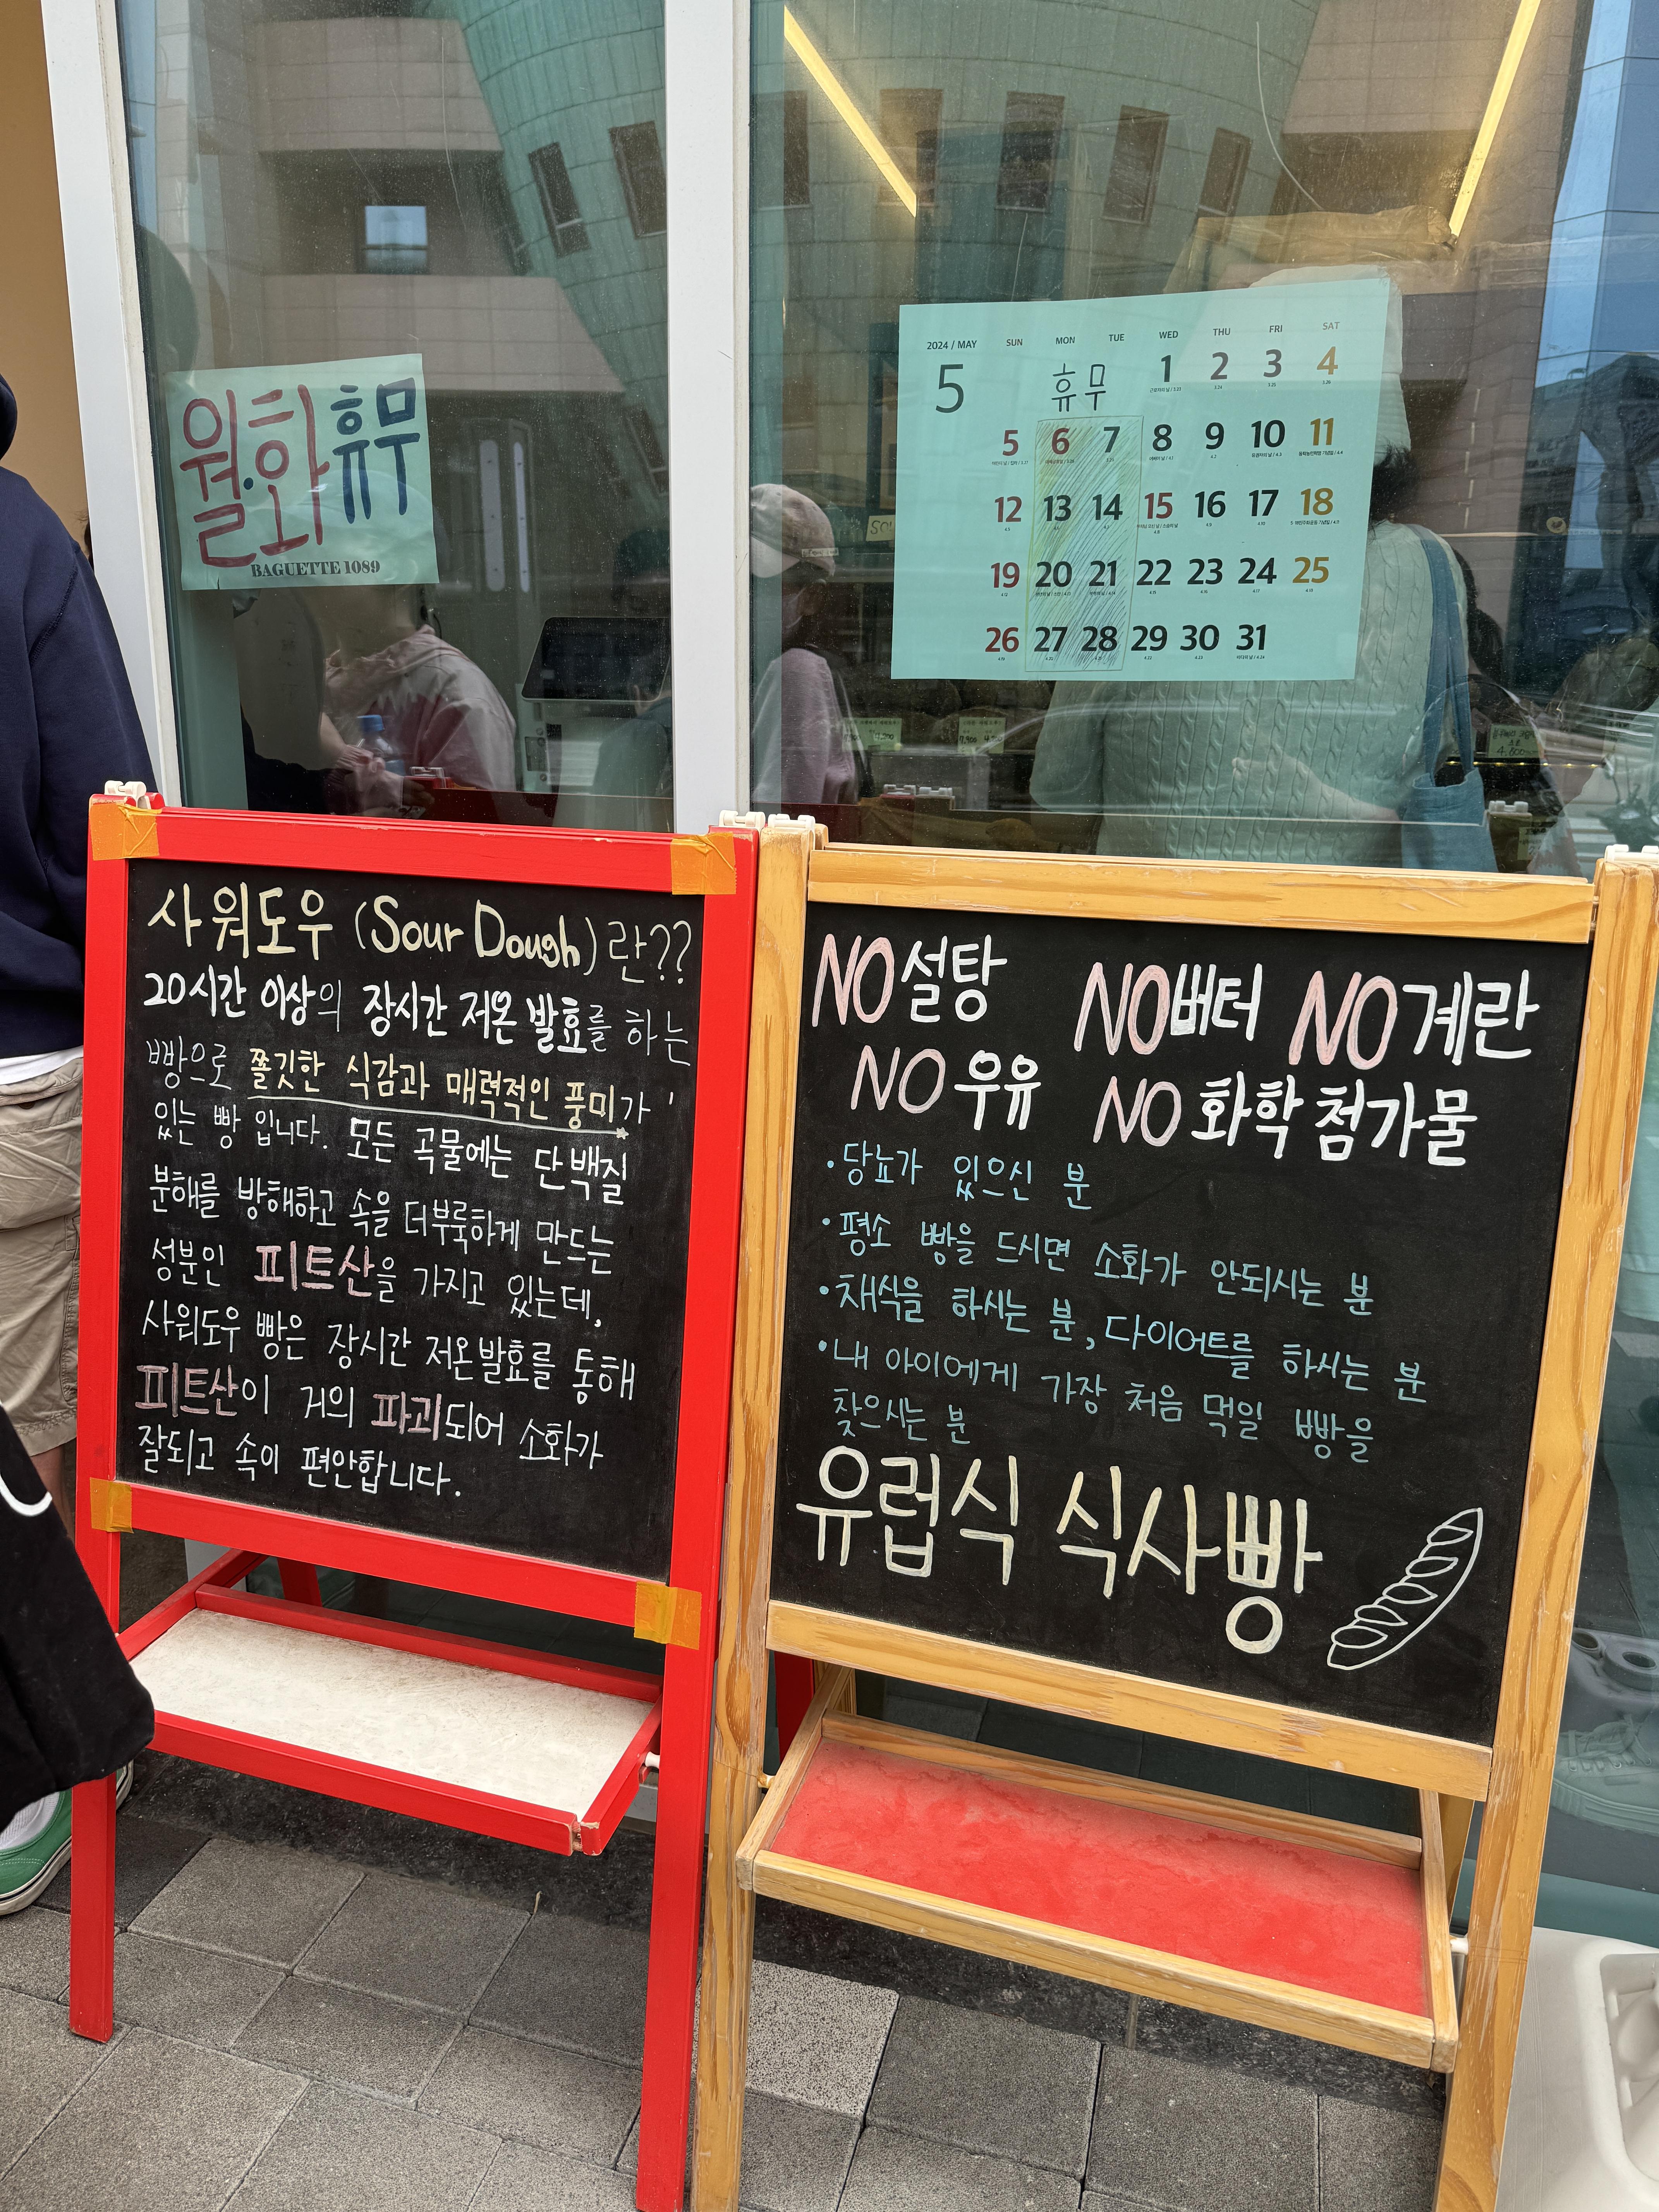 월·화 휴무
BAGUETTE 1089
2024 / MAY SUN MON TUE WED THU FRI SAT
5
휴무
1 2 3 4
5 6 7 8 9 10 11
12 13 14 15 16 17 18
19 20 21 22 23 24 25
26 27 28 29 30 31
사워도우 (Sour Dough)란??
20시간 이상의 장시간 저온 발효를 하는
빵으로 쫄깃한 식감과 매력적인 풍미가
있는 빵 입니다. 모든 곡물에는 단백질
분해를 방해하고 속을 더부룩하게 만드는
성분인 피트산을 가지고 있는데,
사워도우 빵은 장시간 저온발효를 통해
피트산이 거의 파괴되어 소화가
잘되고 속이 편안합니다.
NO설탕 NO버터 NO계란
NO우유 NO화학첨가물
·당뇨가 있으신 분
·평소 빵을 드시면 소화가 안되시는 분
·채식을 하시는 분, 다이어트를 하시는 분
·내 아이에게 가장 처음 먹일 빵을
찾으시는 분
유럽식 식사빵